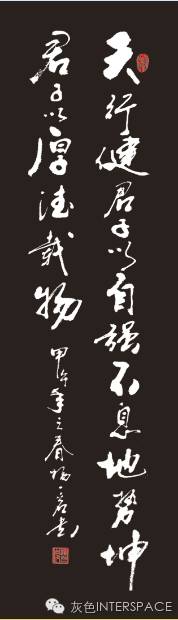 天行健君子以自强不息地势坤
君子以厚德载物
甲午年之春
灰色INTERSPACE